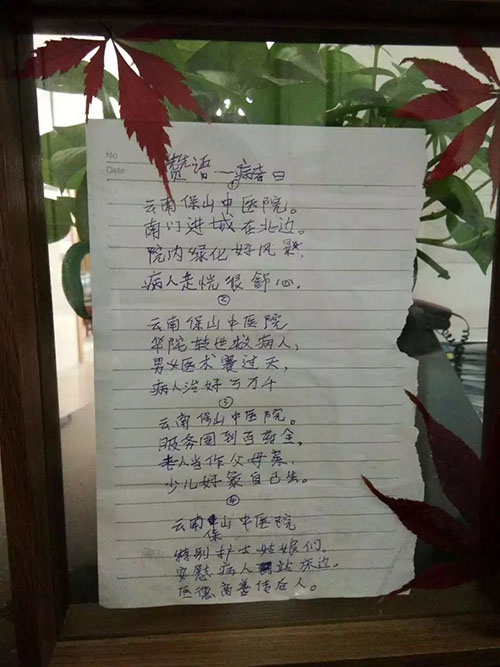 No
Date
赞语一病者曰
①
云南保山中医院。
南门进城在北边。
院内绿化好风景,
病人走恍很舒心.
②
云南保山中医院
华陀转世救病人,
男女医术赛过天,
病人治好万万千
③
云南保山中医院。
服务周到百苗全,
老人当作父母亲,
少儿好象自己生。
④
云南保山中医院
特别护士姑娘们。
安慰病人站床边。
医德高善传后人。